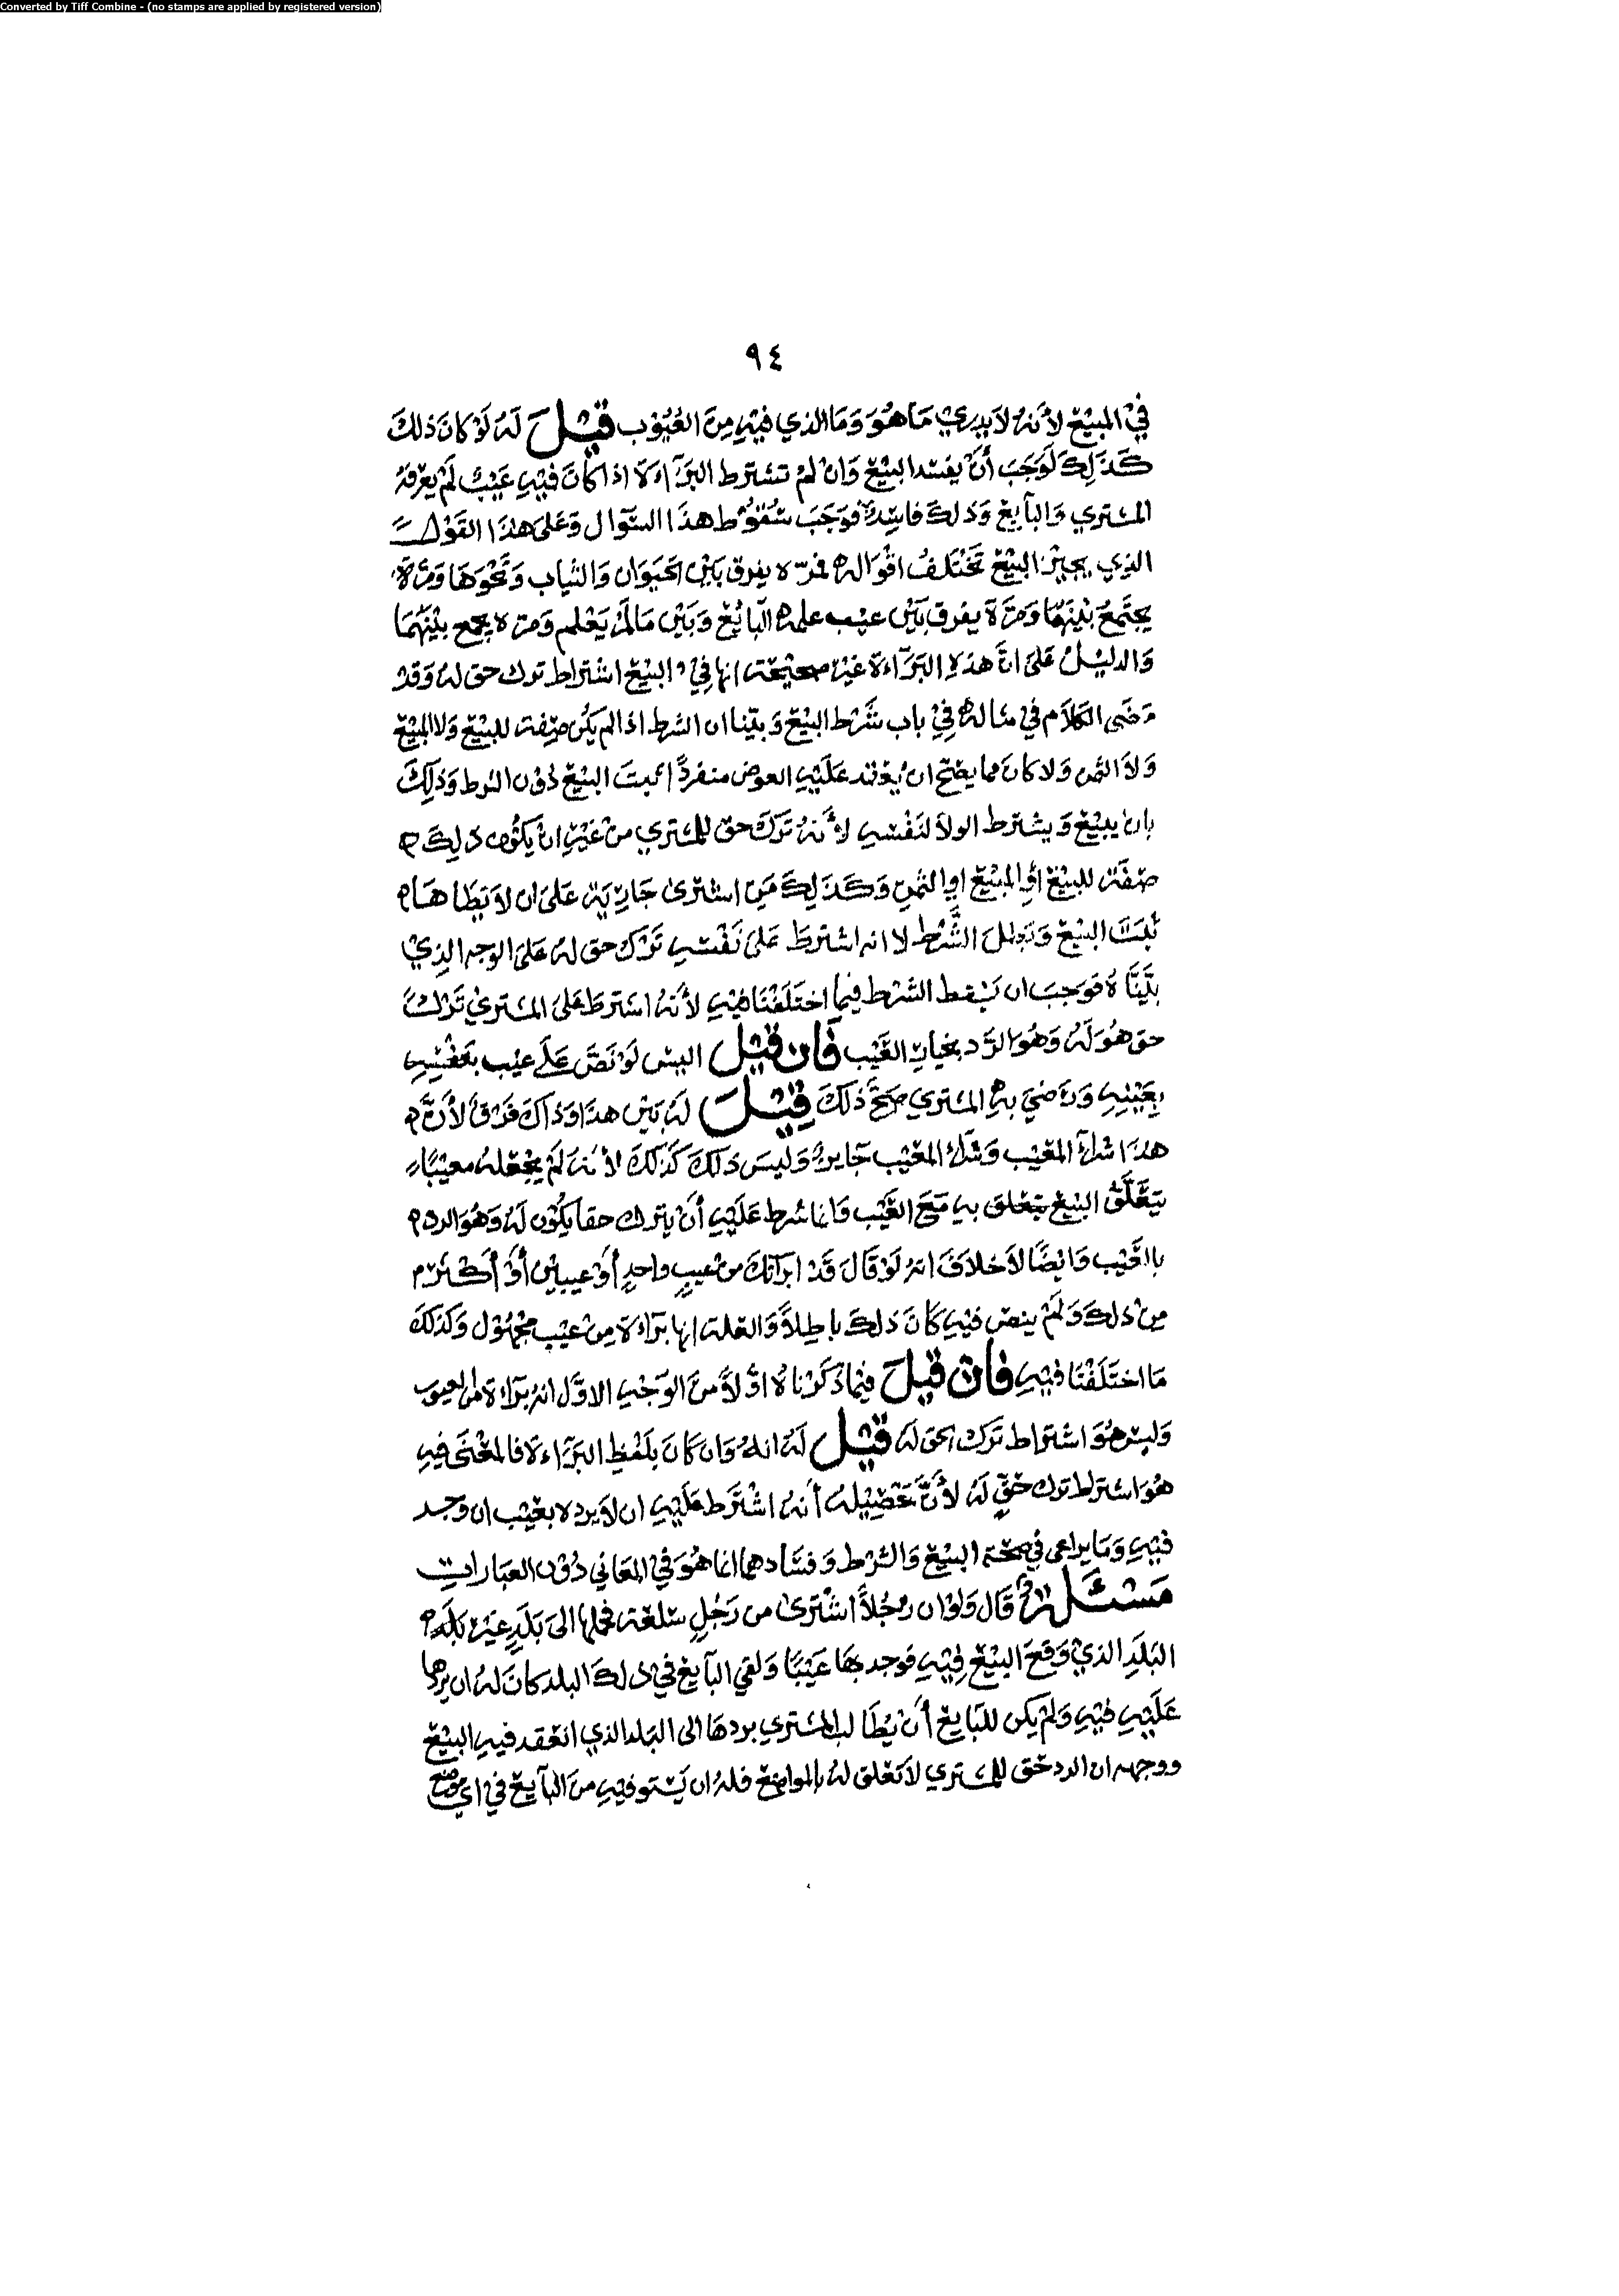 Converted by Tiff Combine - (no stamps are applied by registered version)
٩٤
في المبيع لأنه لا يدري ما هو وما الذي فيه من العيوب قيل له لو كان ذلك
كذلك لوجب أن يفسد البيع وان لم تشترط البرآءة اذا كان فيه عيب لم يعرفه
المشتري والبآيع وذلك فاسد فوجب سقوط هذا السؤال وعلى هذا القول
الذي يجيز البيع تختلف اقواله فمرة يفرق بين الحيوان والثياب ونحوها ومرة
يجتمع بينهما ومرة يفرق بين عيب علمه البآئع وبين مالم يعلم ومرة يجمع بينهما
والدليل على ان هذه البرآءة غير صحيحة انها في البيع اشتراط ترك حق له وقد
مضى الكلام في مثاله في باب شرط البيع وبينا ان الشرط اذا لم يكن صفة للبيع ولا المبيع
ولا الثمن ولا كان مما يصح ان يعقد عليه العوض منفرداً ثبت البيع دون الشرط وذلك
بان يبيع ويشترط الولا لنفسه لأنه ترك حق للمشتري من غير ان يكون ذلك
صفة للبيع أو المبيع او الثمن وكذلك من اشترى جارية على ان لا يطاها
ثبت البيع وبطل الشرط لانه اشترط على نفسه ترك حق له على الوجه الذي
بيناه فوجب ان يسقط الشرط فيما اختلفنا فيه لأنه اشترط على المشتري ترك
حق هو له وهو الرد بخيار العيب فان قيل اليس لو نص على عيب
بعينه ورضي به المشتري صح ذلك قيل له بين هذا وذاك فرق لأن
هذا شرآء المعيب وشرآء المعيب جايز وليس ذلك كذلك لأنه لم يجعله معيباً
يتعلق البيع به مع العيب وانما شرط عليه أن يترك حقا يكون له وهو الرد
بالعيب وايضاً لا خلاف انه لو قال قد ابرأتك من عيب واحد أو عيبين أو أكثر
من ذلك ولم ينص فيه كان ذلك باطلاً والعلة انها برآءة من عيب مجهول وكذلك
ما اختلفنا فيه فان قيل فيما ذكرناه اولاً من الوجه الاول انه برآءة من العيوب
وليس هو اشتراط ترك الحق له قيل له انه وان كان بلفظ البرآءة فالمعنى فيه
هو اشتراط ترك حق له لأن تحصيله أنه اشترط عليه ان لا يرده بعيب ان وجد
فيه وما يراعى في صحة البيع والشرط وفسادهما انما هو في المعاني دون العبارات
مسئلة قال ولو ان رجلاً اشترى من رجل سلعة فحملها الى بلد غير بلد
البلد الذي وقع البيع فيه فوجد بها عيبا ولقي البآيع في ذلك البلد كان له ان يردها
عليه فيه ولم يكن للبايع أن يطالب المشتري بردها الى البلد الذي انعقد فيه البيع
ووجهه ان الرد حق للمشتري لا تعلق له بالمواضع فله ان يستوفيه من البآيع في اي موضع